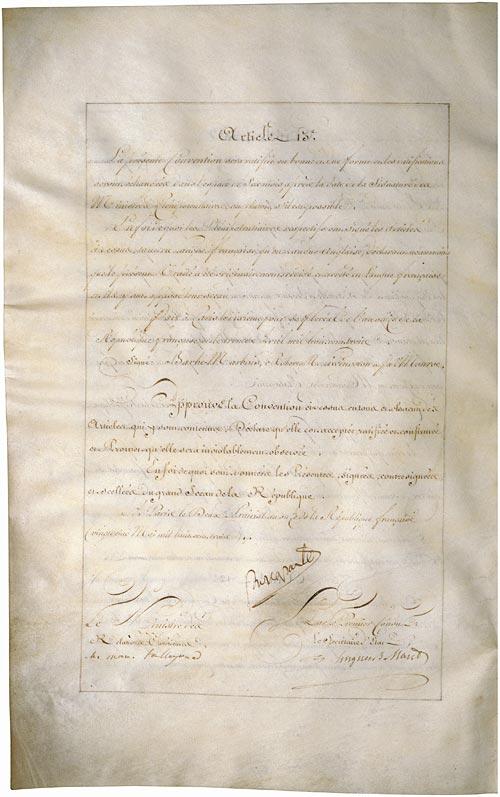 Article 13e.
La présente Convention sera ratifiée en bonne et due forme et les ratifications
seront échangées dans l'espace de Six mois après la date de la Signature des
Ministres Plénipotentiaires, ou plutôt s'il est possible.
En foi de quoi les Plénipotentiaires respectifs ont signé les articles
ci-dessus tant en langue française qu'en langue anglaise, déclarant néanmoins
que le présent Traité a été originairement rédigé et arrêté en langue française
et ils y ont apposé leur sceau.
Fait à Paris le dixième jour de floréal de l'an onze de la
République française et le trente avril mil huit cent trois
Signé Barbé Marbois, Robert R. Livingston et Jas Monroe.
Approuve la Convention ci-dessus en tous et chacun des
Articles qui y sont contenus; Déclare qu'elle est acceptée ratifiée et confirmée
et Promet qu'elle sera inviolablement observée.
En foi de quoi sont données les Présentes, signées, contresignées
et scellées du grand Sceau de la République.
à Paris le Deux Prairial an onze de la République française
(vingt-deux Mai mil huit cent trois).
Bonaparte
Le Ministre des
Relations Extérieures
ch. mau. talleyrand
Par le Premier Consul
Le Secrétaire d'État
Hugues B. Maret